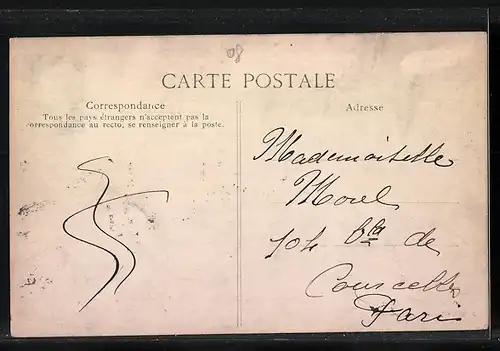 80
CARTE POSTALE
Correspondance
Tous les pays étrangers n'acceptent pas la
correspondance au recto, se renseigner à la poste.
Adresse
Mademoiselle
Morel
104 Bld de
Courcelles
Paris